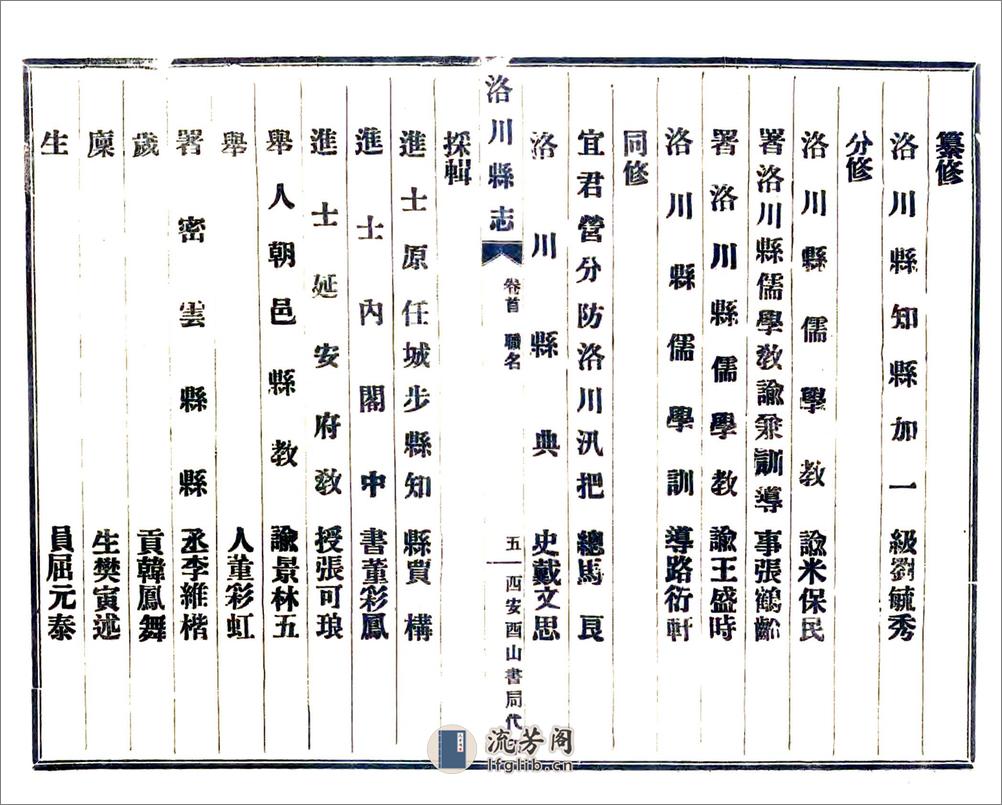 纂修
洛川縣知縣加一級劉毓秀
分修
洛川縣儒學教諭米保民
署洛川縣儒學教諭兼訓導事張鶴齡
署洛川縣儒學教諭王盛時
洛川縣儒學訓導路衍軒
同修
宜君營分防洛川汛把總馬良
洛川縣典史戴文思
洛川縣志
卷首 職名
五
西安酉山書局代
採輯
進士原任城步縣知縣賈構
進士內閣中書董彩鳳
進士延安府教授張可琅
舉人朝邑縣教諭景林五
舉人董彩虹
署密雲縣縣丞李維楷
歲貢韓鳳舞
廩生樊寅述
生員屈元泰
流芳阁
lfglib.cn